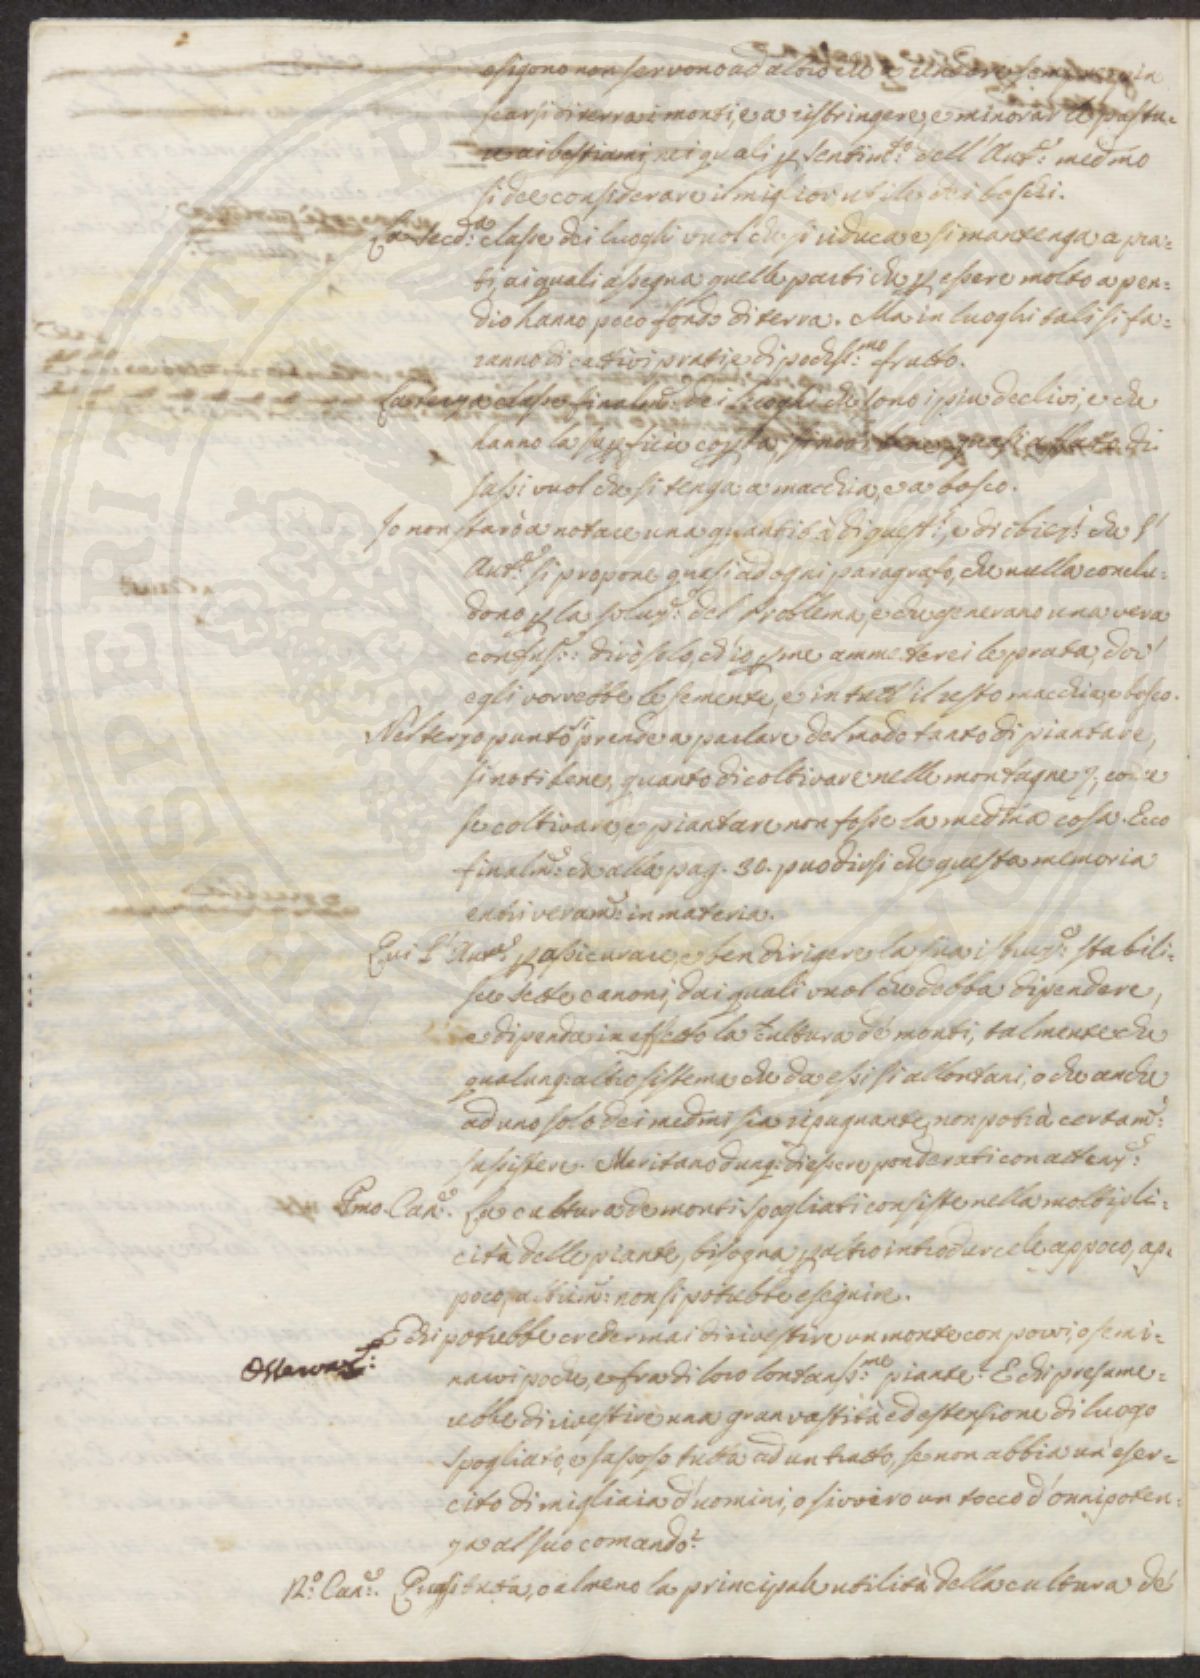 esigono non servono ad altro che a rendere sempre più
scarsi di terra i monti, e a ristringere, e minorar le pastu=
re ai bestiami, nei quali p sentim:to dell'Aut:e medmo
si dee considerare il miglior utile dei boschi.
La secd:a classe dei luoghi vuol che si riduca e si mantenga a pra=
ti, ai quali assegna quelle parti che p essere molto a pen=
dio hanno poco fondo di terra. Ma in luoghi tali si fa=
ranno di cattivi prati, e di pochiss:mo frutto.
La terza classe finalm:e dei luoghi che sono i più declivi, e che
hanno la supficie copta, di
sassi vuol che si tenga a macchia, e a bosco.
Io non starò a notare una quantità di quest:i, e di obiez:i che l'
Aut:e si propone quasi ad ogni paragrafo, che nulla conclu=
dono p la soluz:e del Problema, e che generano una vera
confus:e: dirò solo, ch'io p me ammetterei le prata, dov'
egli vorrebbe le semente, e in tutt'il resto macchia, e bosco.
Nel terzo punto si prende a parlare del modo tanto di piantare,
si noti bene, quanto di coltivare nelle montagne; come
se coltivare, e piantare non fosse la medma cosa. Ecco
finalm:e che alla pag. 30. può dirsi che questa memoria
entri veram:e in materia.
Qui l'Aut:e p assicurare, e ben dirigere la sua istruz:e stabili=
sce sette canoni, dai quali vuol che debba dipendere,
e dipenda in effetto la cultura de' monti, talmente che
qualunq: altro sistema che da essi si allontani, o che anche
ad uno solo dei medmi sia ripugnante, non potrà certam:e
sussistere. Meritano dunq: di essere ponderati con attenz:e
Pmo. Can:e La cultura de monti spogliati consiste nella moltipli=
cità delle piante, bisogna p altro introdurcele appoco, ap=
poco, altrim:i non si potrebbe eseguire.
Osservaz:e E chi potrebbe creder mai di rivestire un monte con porvi, o semi=
narvi poche, e fra di loro lontaniss:me piante? E chi presume=
rebbe di rivestire una gran vastità ed estensione di luogo
spogliato, e sassoso tutta ad un tratto, se non abbia un eser=
cito di migliaia d'uomini, o sivvero un tocco d'onnipoten=
za al suo comando?
12:o Can:e Quasi tutta, o almeno la principale utilità della cultura de'